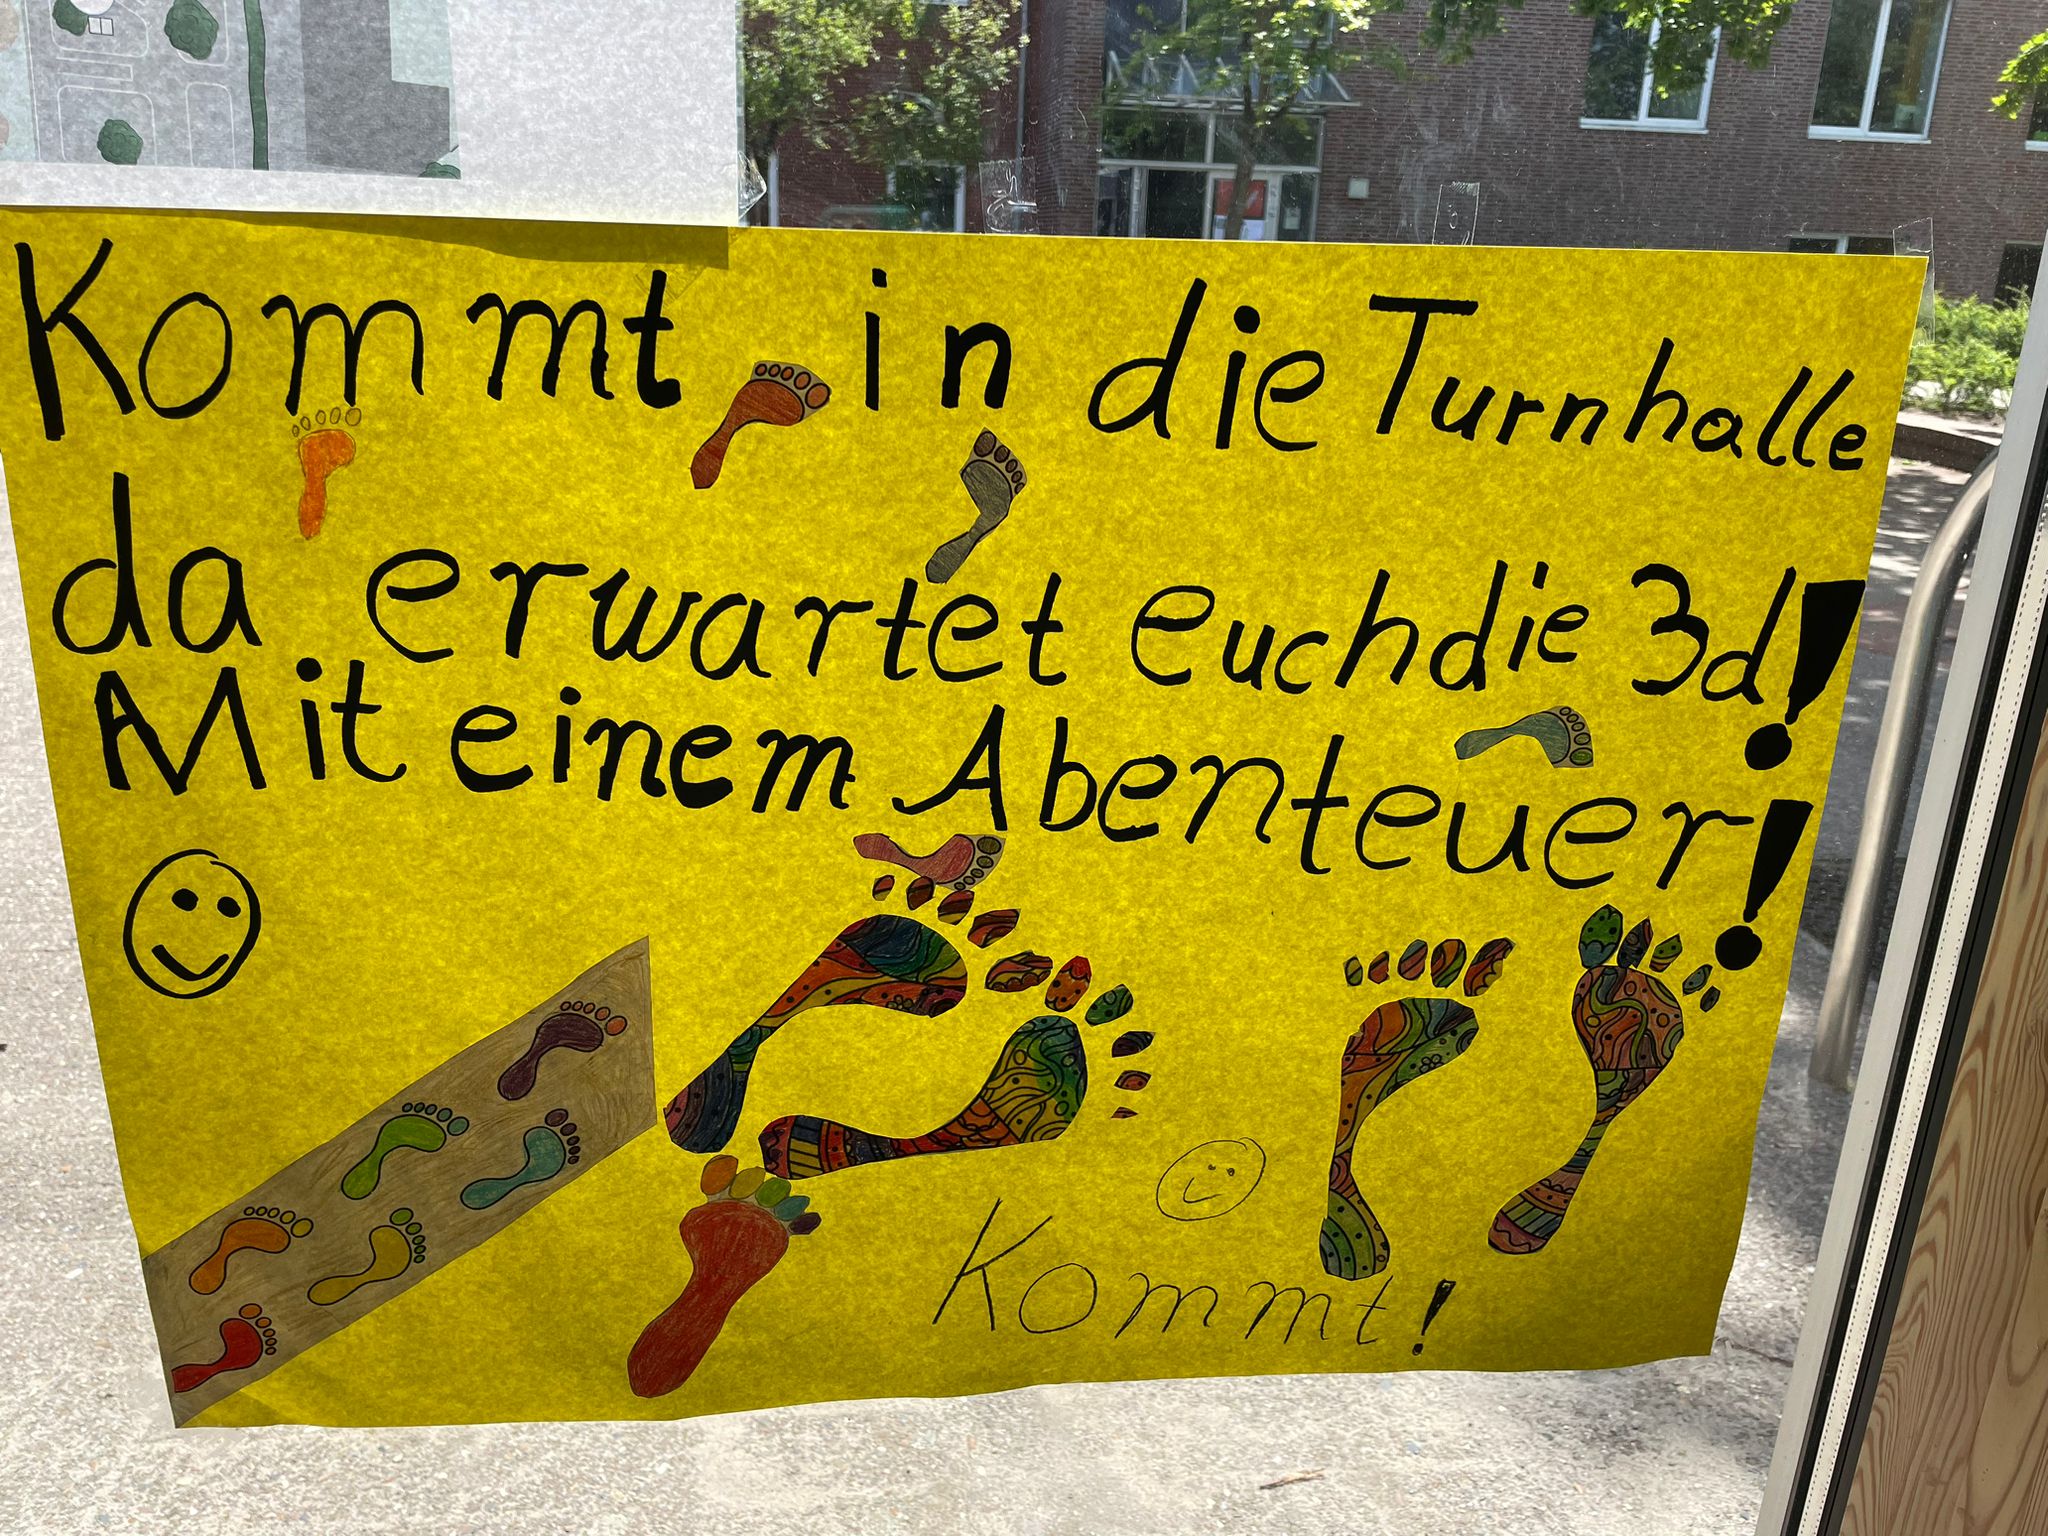 Kommt in die Turnhalle
da erwartet euch die 3d!
Mit einem Abenteuer!
Kommt!